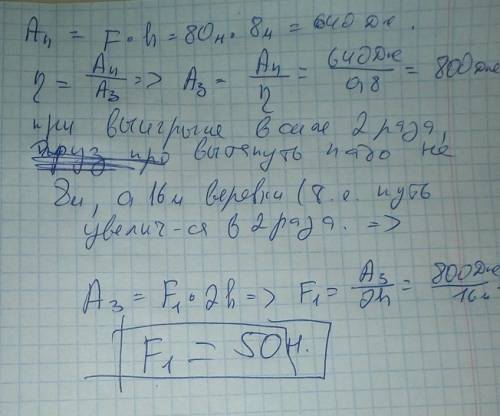 Aп = F·h = 80н·8м = 640 Дж.
η = Aп/Aз => Aз = Aп/η = 640Дж/0,8 = 800Дж
при выигрыше в силе 2 раза,
вытянуть надо не
8м, а 16м веревки (т.е. путь
увелич-ся в 2 раза. =>
Aз = F₁·2h => F₁ = Aз/2h = 800Дж/16м
F₁ = 50н.